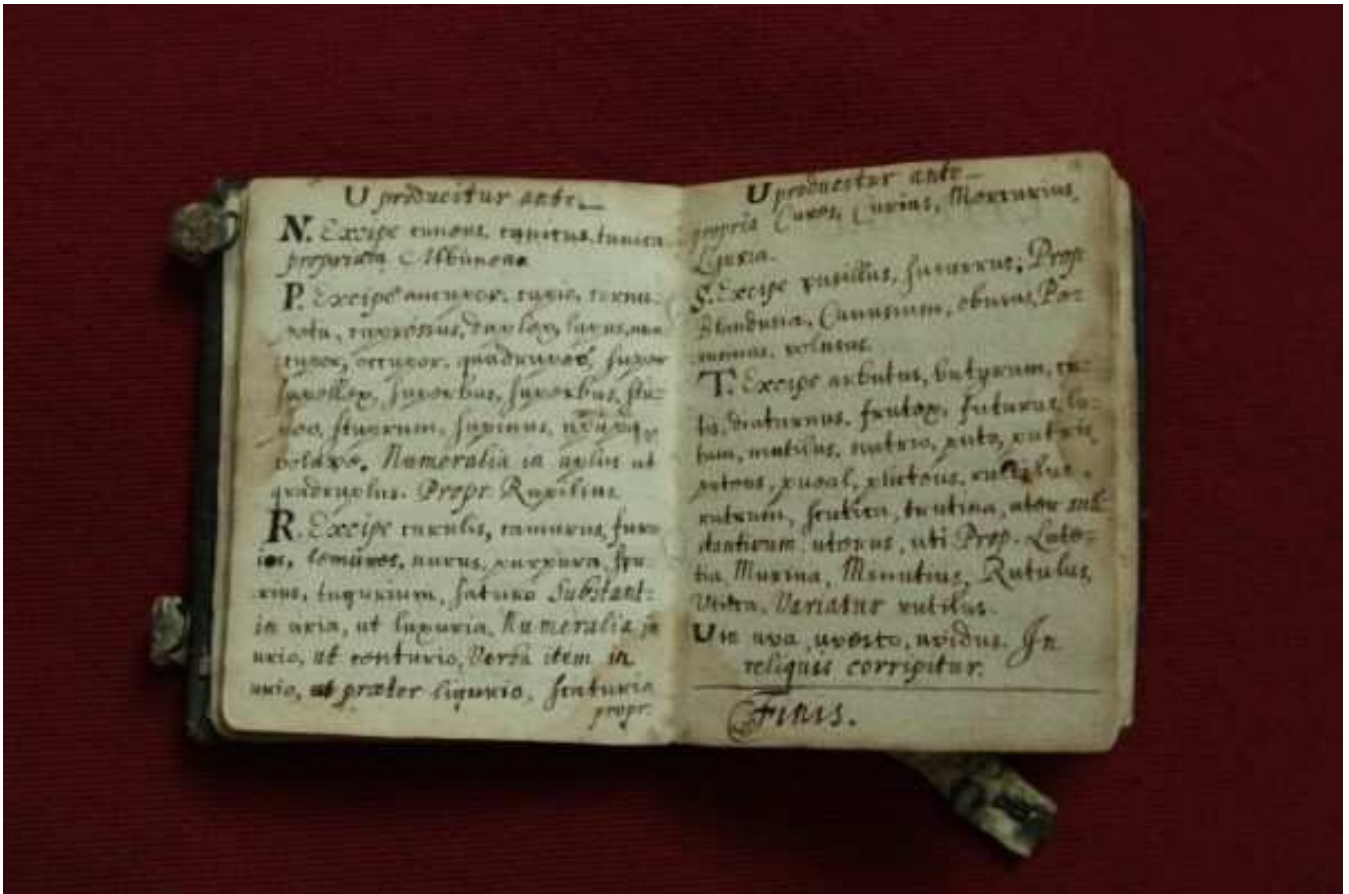 U producitur ante
N. Excipe cuneus, tunica
propriam Albunea
P. Excipe aucupor, cupio,
occupor, quadrupes, super
supellex, superbus,
stuprum, supinus,
Numeralia in uplus ut
quadruplus. Propr. Rupilius
R. Excipe curulis, camurus, furo
lemures, nurus, purpura,
tugurium, satura Substant:
in uria, ut luxuria, Numeralia in
urio, ut centurio, Verba item in
urio, ut præter ligurio, scaturio
propr:
U producitur ante
propria Cures, Curius, Mercurius,
Liguria.
S. Excipe pusillus, susurrus, Prop
Blandusia, Canusium, Por
volusus.
T. Excipe arbutus, butyrum, cu=
tis, diuturnus, frutex, futurus, lu=
tum, mutilus, nutrio, puto, putris,
puteus, puteal, pluteus, rutilus,
rutrum, scutica, trutina, uter sub
stantivum, uterus, uti Prop. Lute=
tia, Murina, Minutius, Rutulus,
Utica, Variatur rutilus.
U in uva, uvesco, uvidus. In
reliquis corripitur.
Finis.